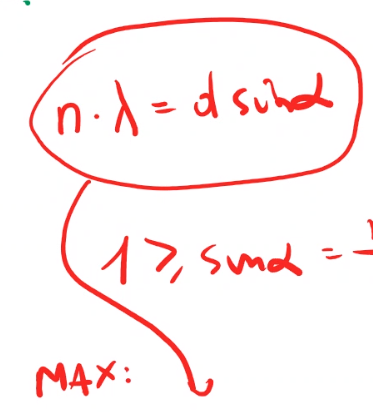 n · λ = d sinα
1 ≥ sinα =
MAX: